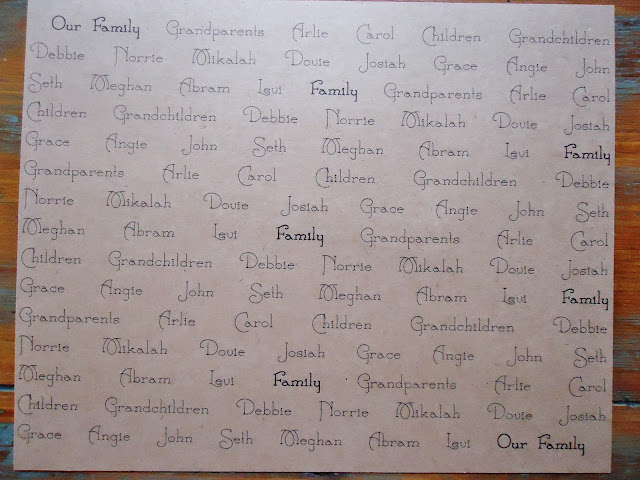 Our Family Grandparents Arlie Carol Children Grandchildren
Debbie Norrie Mikalah Dovie Josiah Grace Angie John
Seth Meghan Abram Levi Family Grandparents Arlie Carol
Children Grandchildren Debbie Norrie Mikalah Dovie Josiah
Grace Angie John Seth Meghan Abram Levi Family
Grandparents Arlie Carol Children Grandchildren Debbie
Norrie Mikalah Dovie Josiah Grace Angie John Seth
Meghan Abram Levi Family Grandparents Arlie Carol
Children Grandchildren Debbie Norrie Mikalah Dovie Josiah
Grace Angie John Seth Meghan Abram Levi Family
Grandparents Arlie Carol Children Grandchildren Debbie
Norrie Mikalah Dovie Josiah Grace Angie John Seth
Meghan Abram Levi Family Grandparents Arlie Carol
Children Grandchildren Debbie Norrie Mikalah Dovie Josiah
Grace Angie John Seth Meghan Abram Levi Our Family